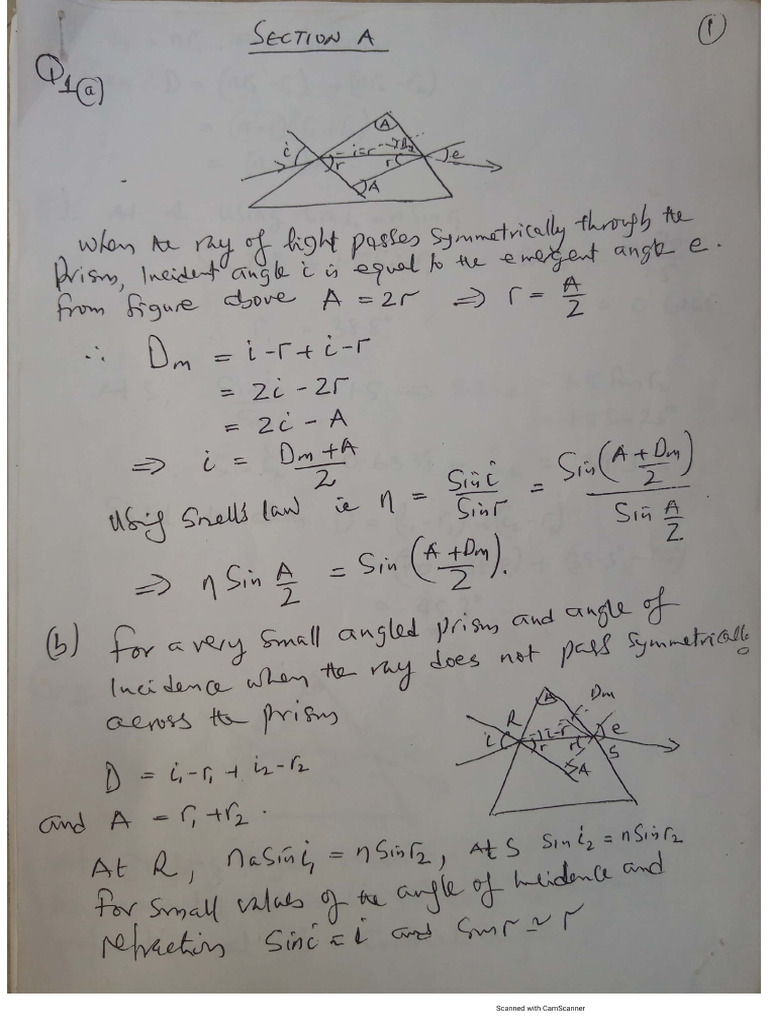 SECTION A
①
Q1(a)
A
i
i-r
r
r
e
A
When the ray of light passes symmetrically through the
prism, Incident angle i is equal to the emergent angle e.
from figure above A = 2r ⇒ r = A/2
∴ Dm = i-r + i-r
= 2i - 2r
= 2i - A
⇒ i = (Dm + A)/2
Using Snells law ie n = Sin i / Sin r = Sin((A + Dm)/2) / Sin A/2
⇒ n Sin A/2 = Sin((A + Dm)/2).
(b) For a very small angled prism and angle of
Incidence when the ray does not pass symmetrically
across the prism
A
Dm
R
i
i-r
r
r
e
S
A
D = i1 - r1 + i2 - r2
and A = r1 + r2.
At R, na Sin i1 = n Sin r2, At S Sin i2 = n Sin r2
For small values of the angle of Incidence and
refraction Sin i ≈ i and Sin r ≃ r
Scanned with CamScanner